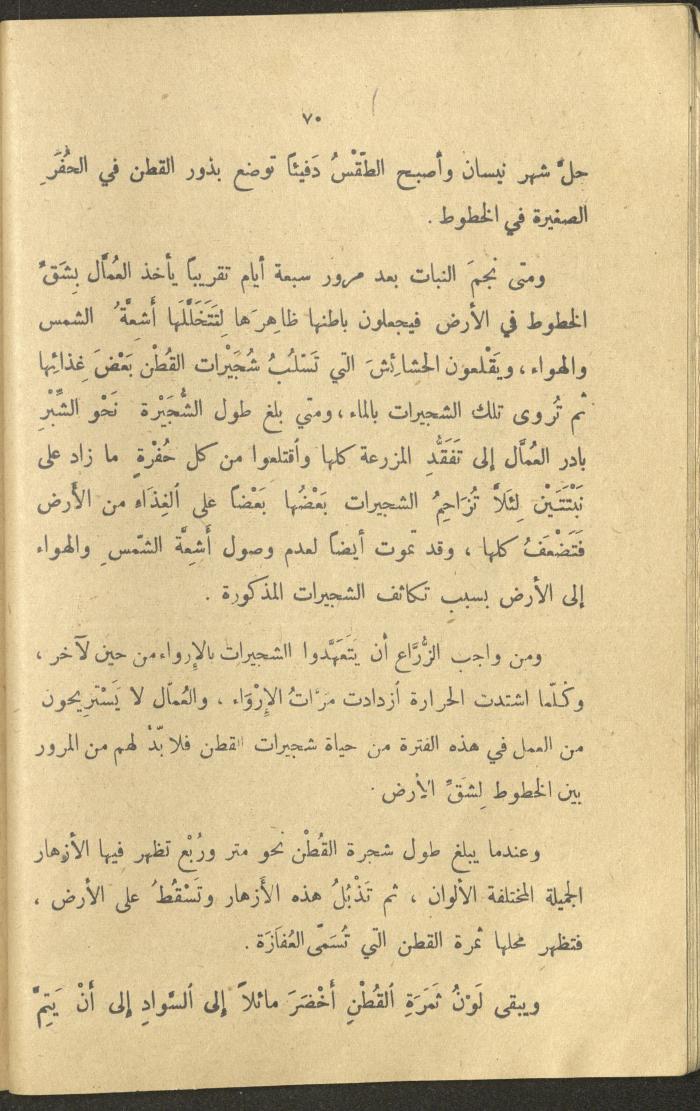 ٧٠
حلَّ شهر نيسان وأصبح الطَّقْسُ دَفيئاً توضع بذور القطن في الحُفَرِ
الصغيرة في الخطوط .
ومتى نجمَ النبات بعد مرور سبعة أيام تقريباً يأخذ العُمَّال بِشَقِّ
الخطوط في الأرض فيجعلون باطنها ظاهِرَها لِتَتَخَلَّلَها أَشعةُ الشمس
والهواء ، ويَقْلعون الحشائِشَ التي تَسْلُبُ شُجَيْرات القُطْن بَعْضَ غِذائِها
ثم تُروى تلك الشجيرات بالماء ، ومتى بلغ طول الشُّجَيْرة نَحْو الشِّبْرِ
بادر العُمَّال إلى تَفَقُّدِ المزرعة كلها وأقتلعوا من كل حُفْرةٍ ما زاد على
نَبْتَتَيْن لِئَلاَّ تُزَاحِمُ الشجيرات بَعْضُها بَعْضاً على ٱلغِذَاء من الأَرض
فَتَضْعَفُ كلها ، وقد تموت أيضاً لعدم وصول أَشِعَّة الشّمسِ والهواء
إلى الأرض بسبب تكاثف الشجيرات المذكورة .
ومن واجب الزُّرَّاع أن يَتَعَهَّدوا الشجيرات بالإِرواء من حين لآخر ،
وكُلّما اشتدت الحرارة أزدادت مَرَّاتُ الإِرْوَاء ، والعُمّال لا يَسْتَرِيحون
من العمل في هذه الفترة من حياة شجيرات القطن فلا بُدَّ لهم من المرور
بين الخطوط لِشَقِّ الأرض .
وعندما يبلغ طول شجرة القُطْن نحو متر ورُبْع تظهر فيها الأزهار
الجميلة المختلفة الألوان ، ثم تَذْبُلُ هذه الأَزهار وتَسْقُطُ على الأَرض ،
فتظهر محلها ثمرة القطن التي تُسَمّى العُفَازَة .
ويبقى لَوْنُ ثَمَرَةِ ٱلقُطْنِ أَخْضَرَ مائلاً إلى ٱلسَّوادِ إلى أَنْ يَتِمَّ